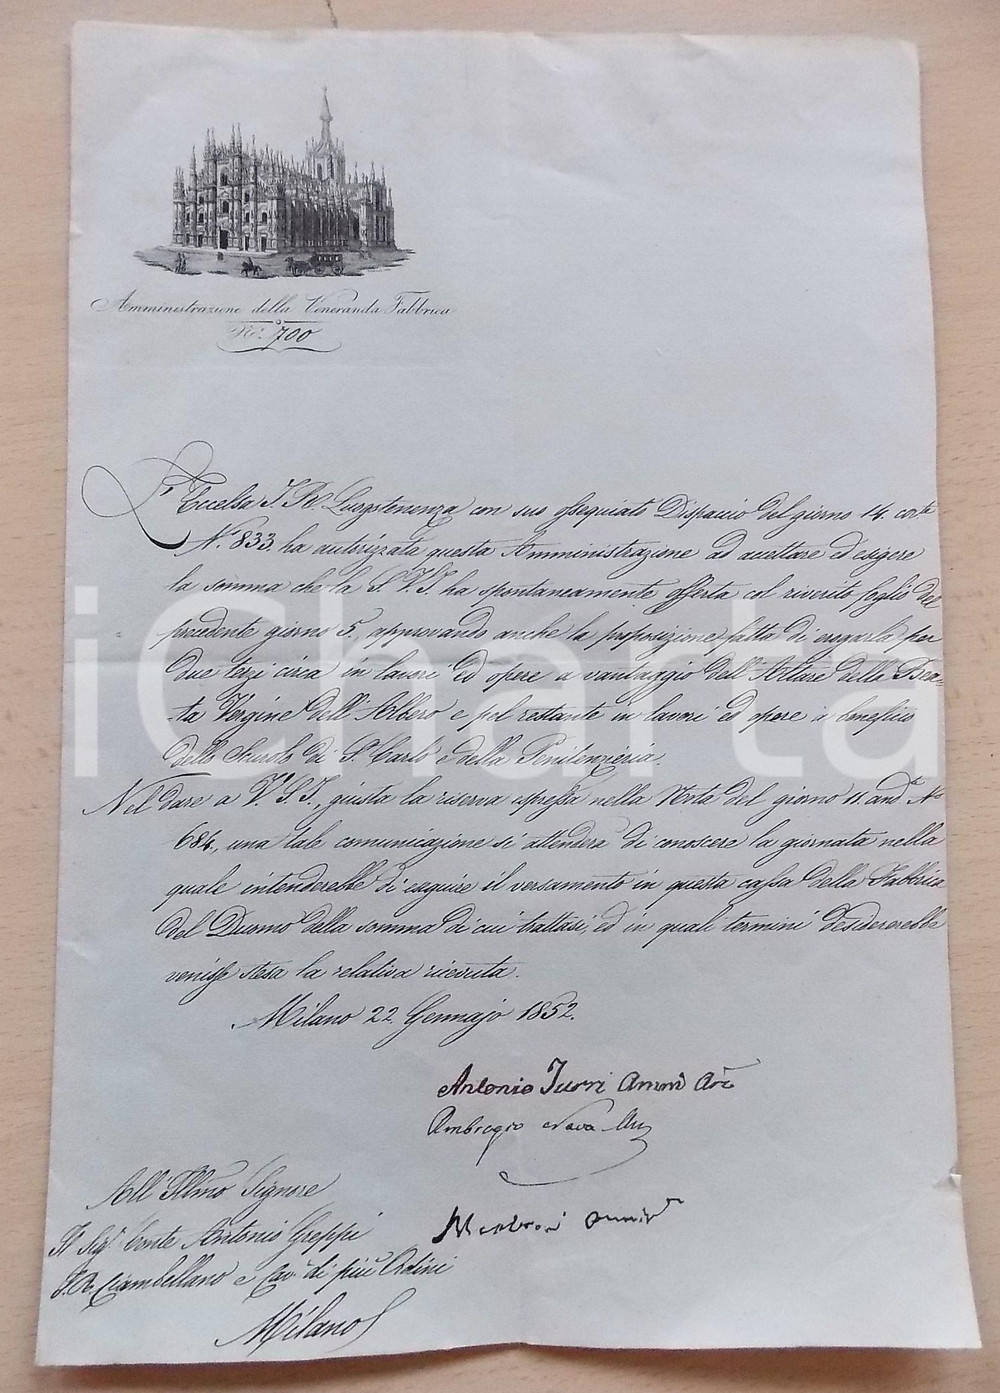 Amministrazione della Veneranda Fabbrica
N.° 700
L'Eccelsa I. R. Luogotenenza con suo ossequiato Dispaccio del giorno 14. corr.te
N.° 833. ha autorizzata questa Amministrazione ad accettare ed esigere
la somma che la S. V. I. ha spontaneamente offerta col riverito foglio del
precedente giorno 5., approvando anche la proposizione fatta di erogarla per
due terzi circa in lavori ed opere a vantaggio dell'Altare della Bea-
-ta Vergine dell'Albero e pel restante in lavori ed opere a beneficio
dello Scurolo di S. Carlo e della Penitenzieria.
Nel dare a V. S. I., giusta la riserva espressa nella Nota del giorno 11. and.e N.°
684., una tale comunicazione si attenderà di conoscere la giornata nella
quale intenderebbe di eseguire il versamento in questa cassa della Fabbrica
del Duomo della somma di cui trattasi, ed in quali termini desidererebbe
venisse stesa la relativa ricevuta.
Milano 22. Gennajo 1852.
Antonio Amm
Ambrogio Nava
All' Illmo Signore
Il Sig.r Conte Antonio Greppi
I. R. Ciambellano e Cav.e di più Ordini
Milano
iCharta